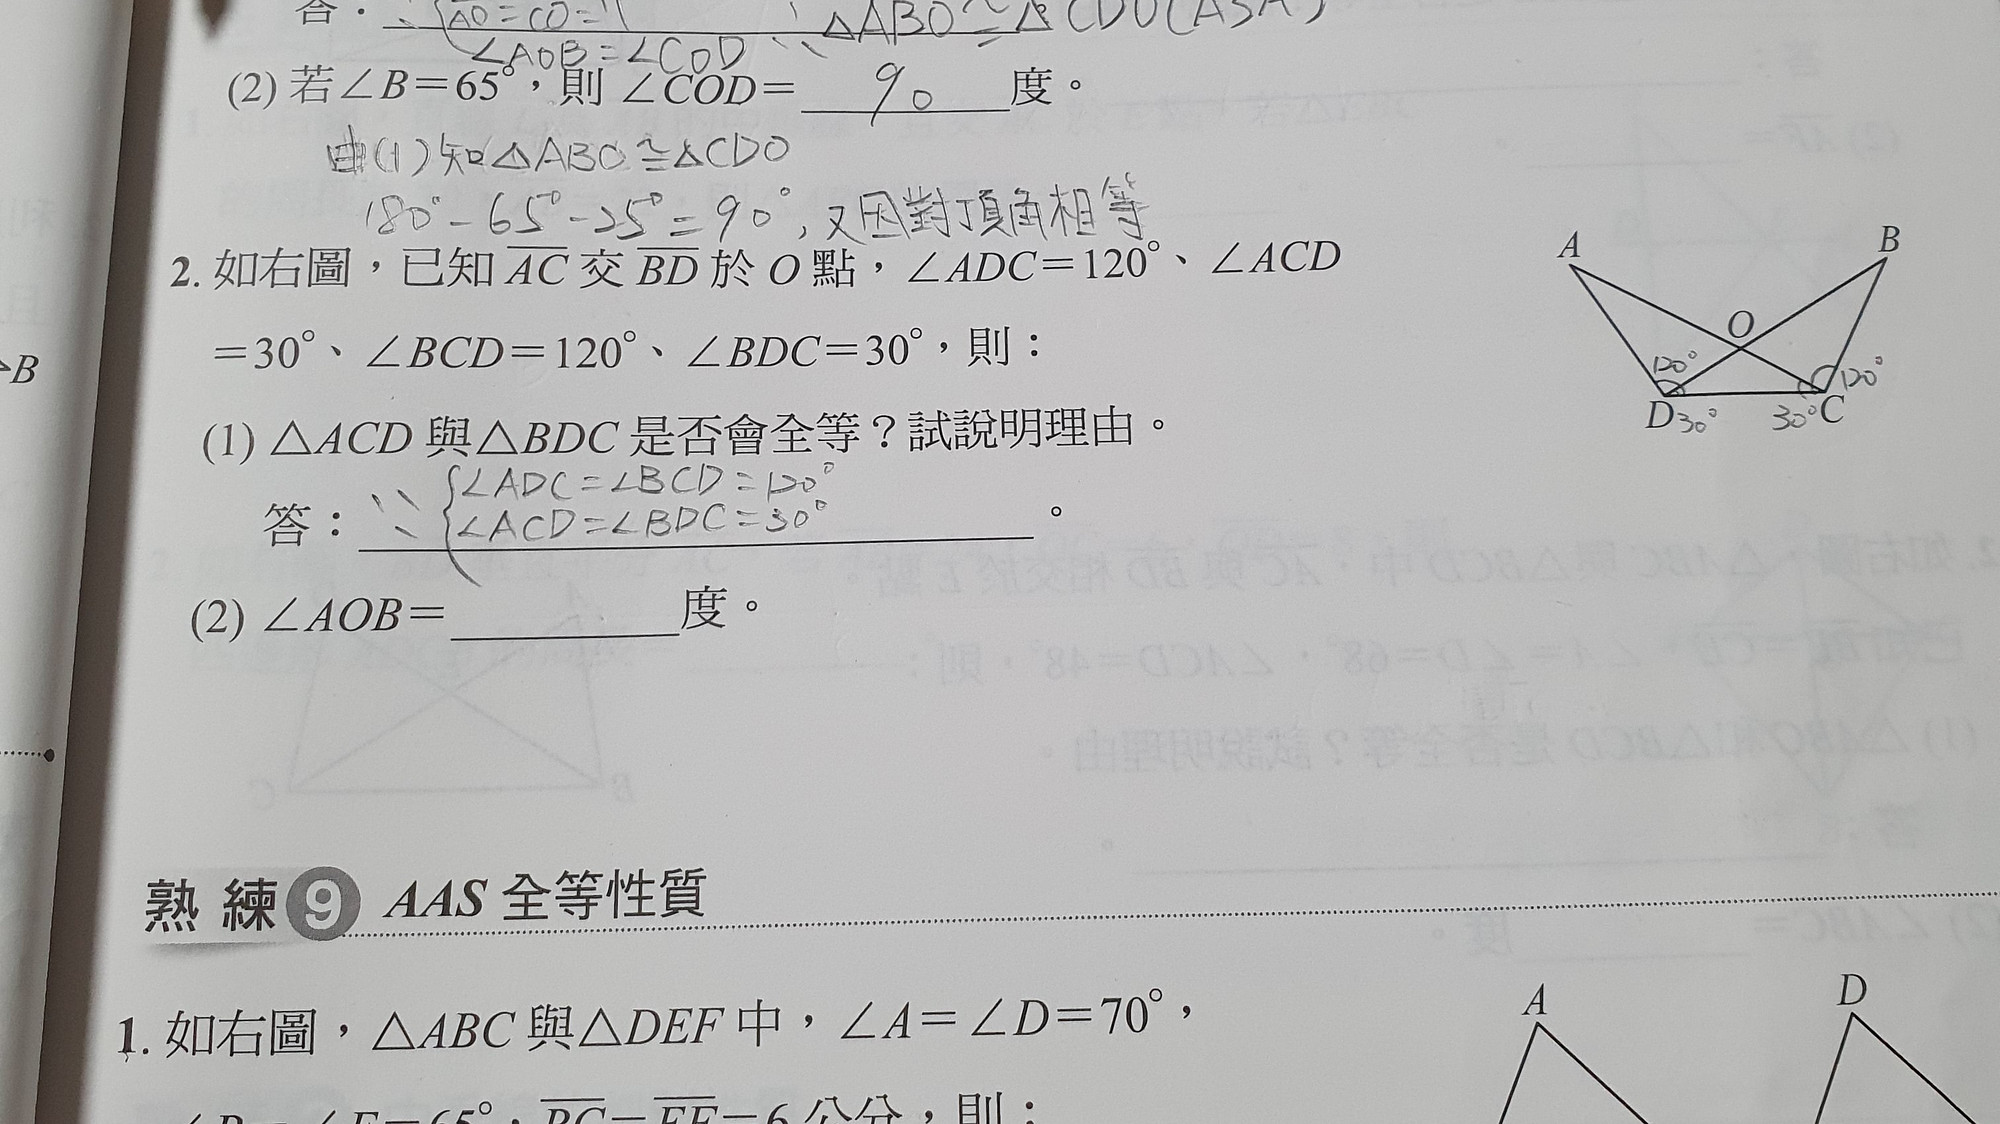 答：{AO=CO= ∴△ABO≅△CDO(ASA)
∠AOB=∠COD
(2) 若∠B=65°，則 ∠COD= 90 度。
由(1)知△ABO≅△CDO
180°-65°-25°=90°，又因對頂角相等
2. 如右圖，已知 AC 交 BD 於 O 點，∠ADC=120°、∠ACD
=30°、∠BCD=120°、∠BDC=30°，則：
A
B
O
120°
120°
D 30°
30° C
(1) △ACD 與△BDC 是否會全等？試說明理由。
∵ {∠ADC=∠BCD=120°
答： ∠ACD=∠BDC=30° 。
(2) ∠AOB= 度。
B
熟練 9 AAS 全等性質
1. 如右圖，△ABC 與△DEF 中，∠A=∠D=70°，
=65°，BC=EF=6 公分，則：
A
D